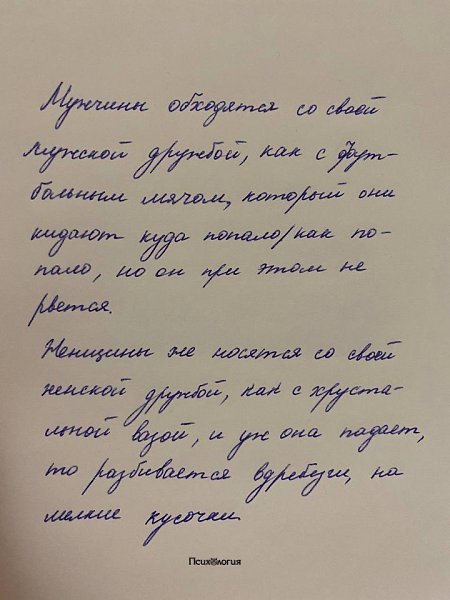 Мужчины обходятся со своей
мужской дружбой, как с фут-
больным мячом, который они
кидают куда попало/как по-
пало, но он при этом не
рвется.
Женщины же носятся со своей
женской дружбой, как с хруста-
льной вазой, и уж она падает,
то разбивается вдребезги, на
мелкие кусочки.
Психология